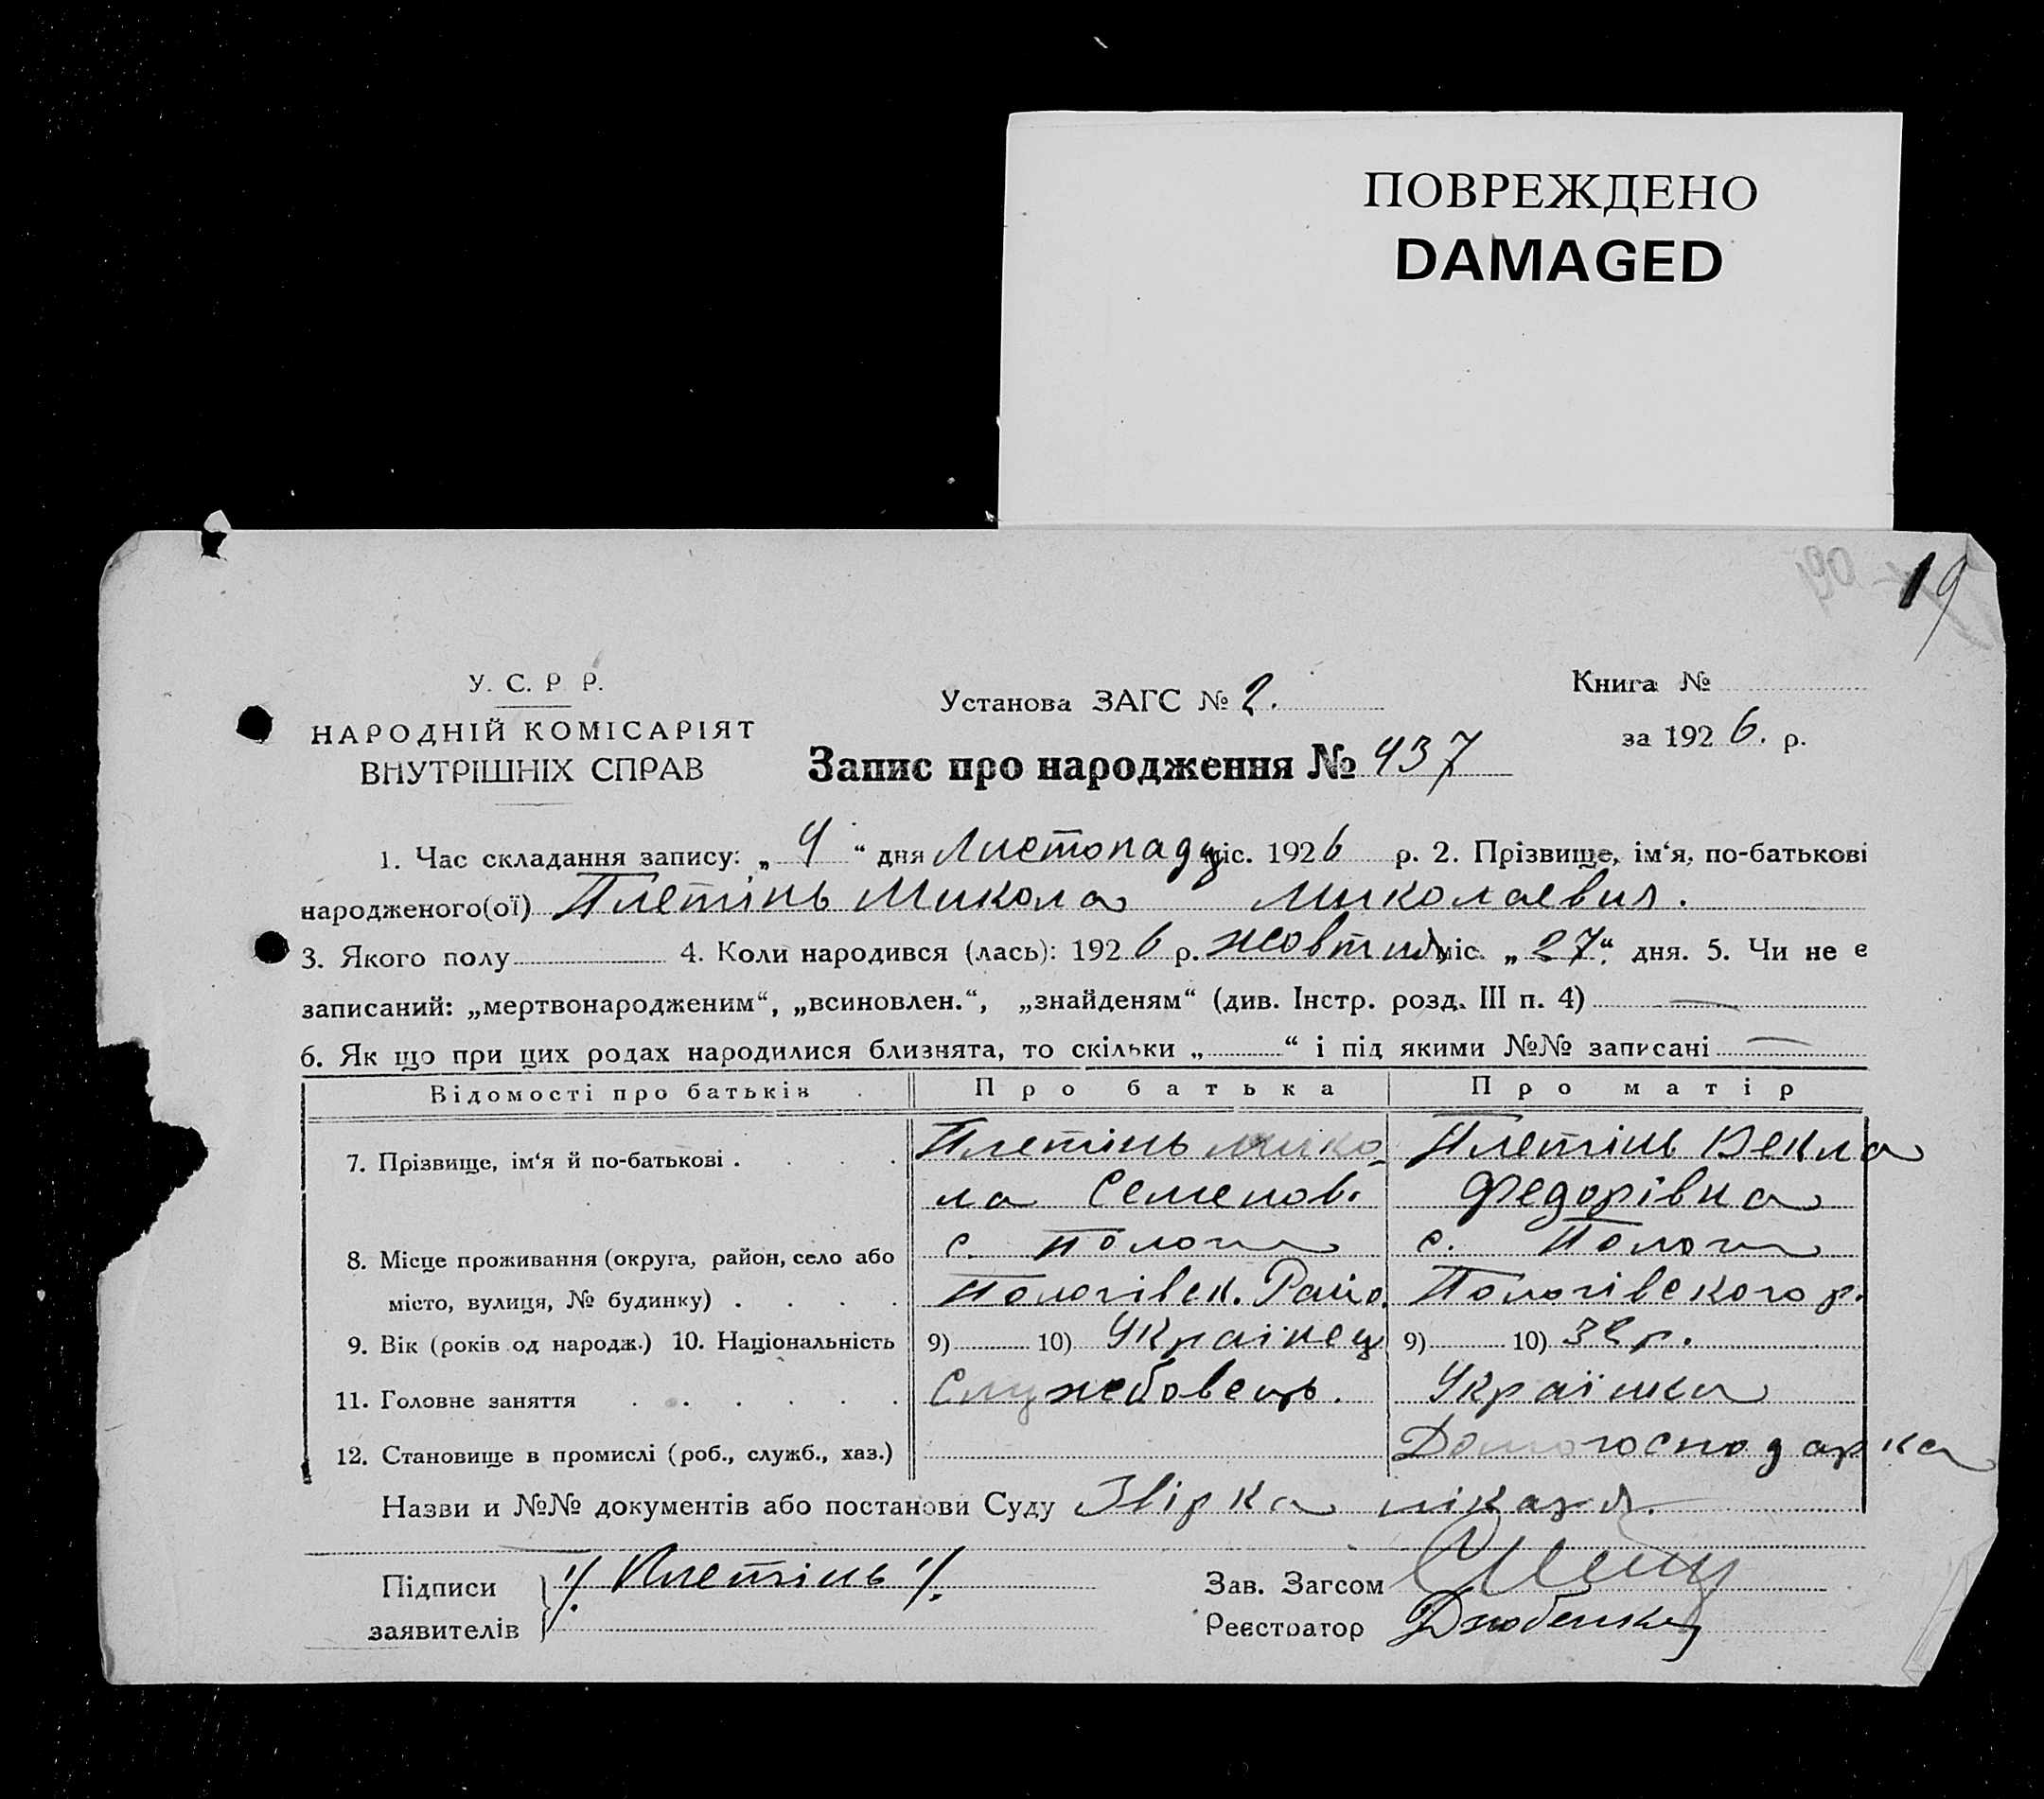 ПОВРЕЖДЕНО
DAMAGED
19
У. С. Р Р.
НАРОДНІЙ КОМІСАРІЯТ
ВНУТРІШНІХ СПРАВ
Установа ЗАГС № 2.
Книга №
за 1926. р.
Запис про народження № 437
1. Час складання запису: „ 4 “ дня Листопаду міс. 1926 р. 2. Прізвище, ім‘я, по-батькові
народженого(ої) Плетінь Микола Миколаевич.
3. Якого полу 4. Коли народився (лась): 1926 р. жовтня міс. „ 27 “ дня. 5. Чи не є
записаний: „мертвонародженим“, „всиновлен.“, „знайденям“ (див. Інстр. розд. III п. 4) —
6. Як що при цих родах народилися близнята, то скільки „ “ і під якими №№ записані —
Відомості про батьків Про батька Про матір
7. Прізвище, ім‘я й по-батькові . . . . Плетінь Мико- Плетінь Векла
ла Семенов. Федорівна
с. Пологи с. Пологи
8. Місце проживання (округа, район, село або
місто, вулиця, № будинку) . . . . Пологівск. Райо. Пологівского р.
9. Вік (років од народж.) 10. Національність 9) 10) Українец 9) 10) 32 р.
11. Головне заняття . . . . . . Служебовець. Українка
12. Становище в промислі (роб., служб., хаз.) Домогосподарка
Назви и №№ документів або постанови Суду Звірка лікаря.
Підписи
заявителів
Плетінь
Зав. Загсом
Реєстратор